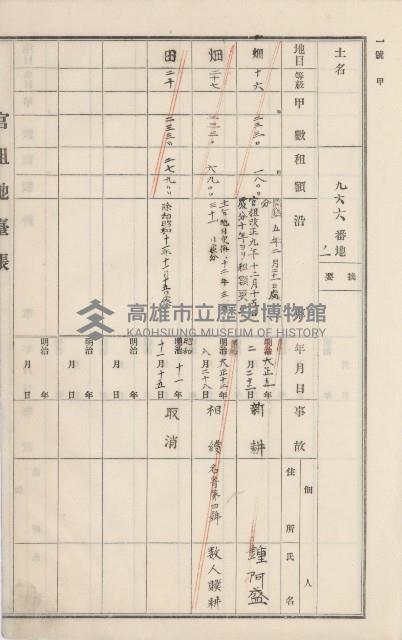 一號 甲
土名
九六六番地ノ一
摘要
地目 等級 甲數 租額 沿革
年月日 事故 個人 住所 氏名
畑 十六 二三三〇 一八〇〇
五年二月二十一日處分
官租改正九年十二月十五日
處分十年ヨリ租額更
明治 大正五年二月二十一日
新耕
鍾阿盛
畑 二十七 二三三〇 六九〇〇
土名地目變換 十二年三月
三十一日處分
明治 大正十二年八月二十八日
相續
名寄第四號
數人贌耕
田 二十 二三三〇 二七九〇〇
除却昭和十一年十一月十五日處分
明治 昭和十一年十一月十五日
取消
明治 年 月 日
明治 年 月 日
明治 年 月 日
官租地臺帳
高雄市立歷史博物館
KAOHSIUNG MUSEUM OF HISTORY